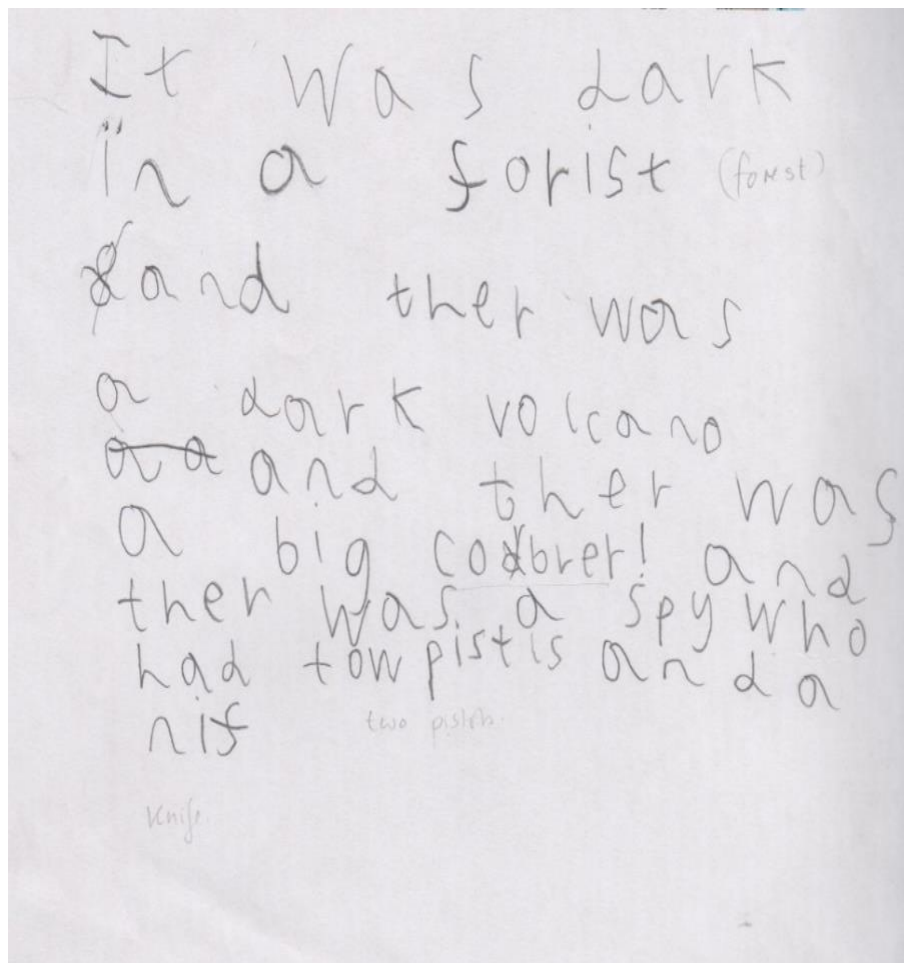 It was dark
in a forist (forest)
and ther was
a dark volcano
a a and ther was
a big cobrer! and
ther was a spy who
had tow pistls and a
nif
two pistols
knife